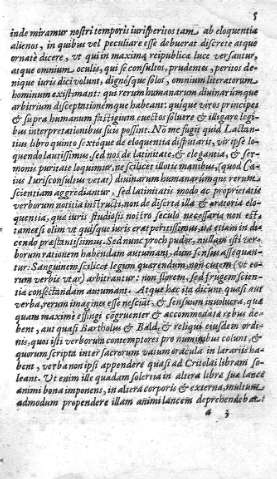 5
inde miramur nostri temporis iurisperitos tam ab eloquentia
alienos, in quibus vel peculiare esse debuerat disertè atque
ornatè dicere, vt qui in maxima reipublica luce versantur,
atque omnium oculis, qui se consultos, prudentes, peritos de-
nique iuris dici volunt, dignósque solos, omnium literatorum
hominum existimant: qui rerum humanarum diuinarúmque
arbitrium disceptationémque habeant: quíque viros principes
& supra humanum fastigium euectos soluere & illigare legi-
bus interpretationibus suis possint. Nō me fugit quid Lactan-
tius libro quinto & extóque de eloquentia disputarit, vir ipse lo-
quendo lautissimus, sed nos de latinitate, & elegantia, & ser-
monis puritate loquimur, ne scilicet illutis manibus, (quod Ca-
ius Iurisconsultus vetat) diuinarum humanarúmque rerum
scientiam aggrediantur, sed latinitatis modo ac proprietatis
verborum notitia instructi: non de diserta illa & oratoria elo-
quentia, quæ iuris studiosis nostro seculo necessaria non est,
tametsi olim vt quisque iuris erat peritissimus, ita etiam in di-
cendo præstantissimus. Sed nunc proh pudor, nullam isti ver-
borum rationem habendam autumant, dum sensus assequan-
tur. Sanguinem scilicet legum quærendum, non cutem (vt eo-
rum verbis vtar) arbitrantur: non florem, sed frugem scien-
tia consectandam autumant. Atque hæc ita dicunt quasi aut
verba, rerum imagines esse nesciāt, & sensuum inuolucra, quæ
quam maximè effingi cōgruenter & accommodatè rebus de-
bent, aut quasi Bartholus & Bald, & reliqui eiusdem ordi-
nis, quos isti verborum contemptores pro numinibus colunt, &
quorum scripta inter sacrorum vatum oracula in larariis ha-
bent, verba non ipsi appendere quasi ad Critolai libram so-
leant. Vt enim ille quadam solertia in altera libræ suæ lance
animi bona imponens, in altera corporis & externa, multum
admodum propendere illam animi lancem deprehendebat:
a 3